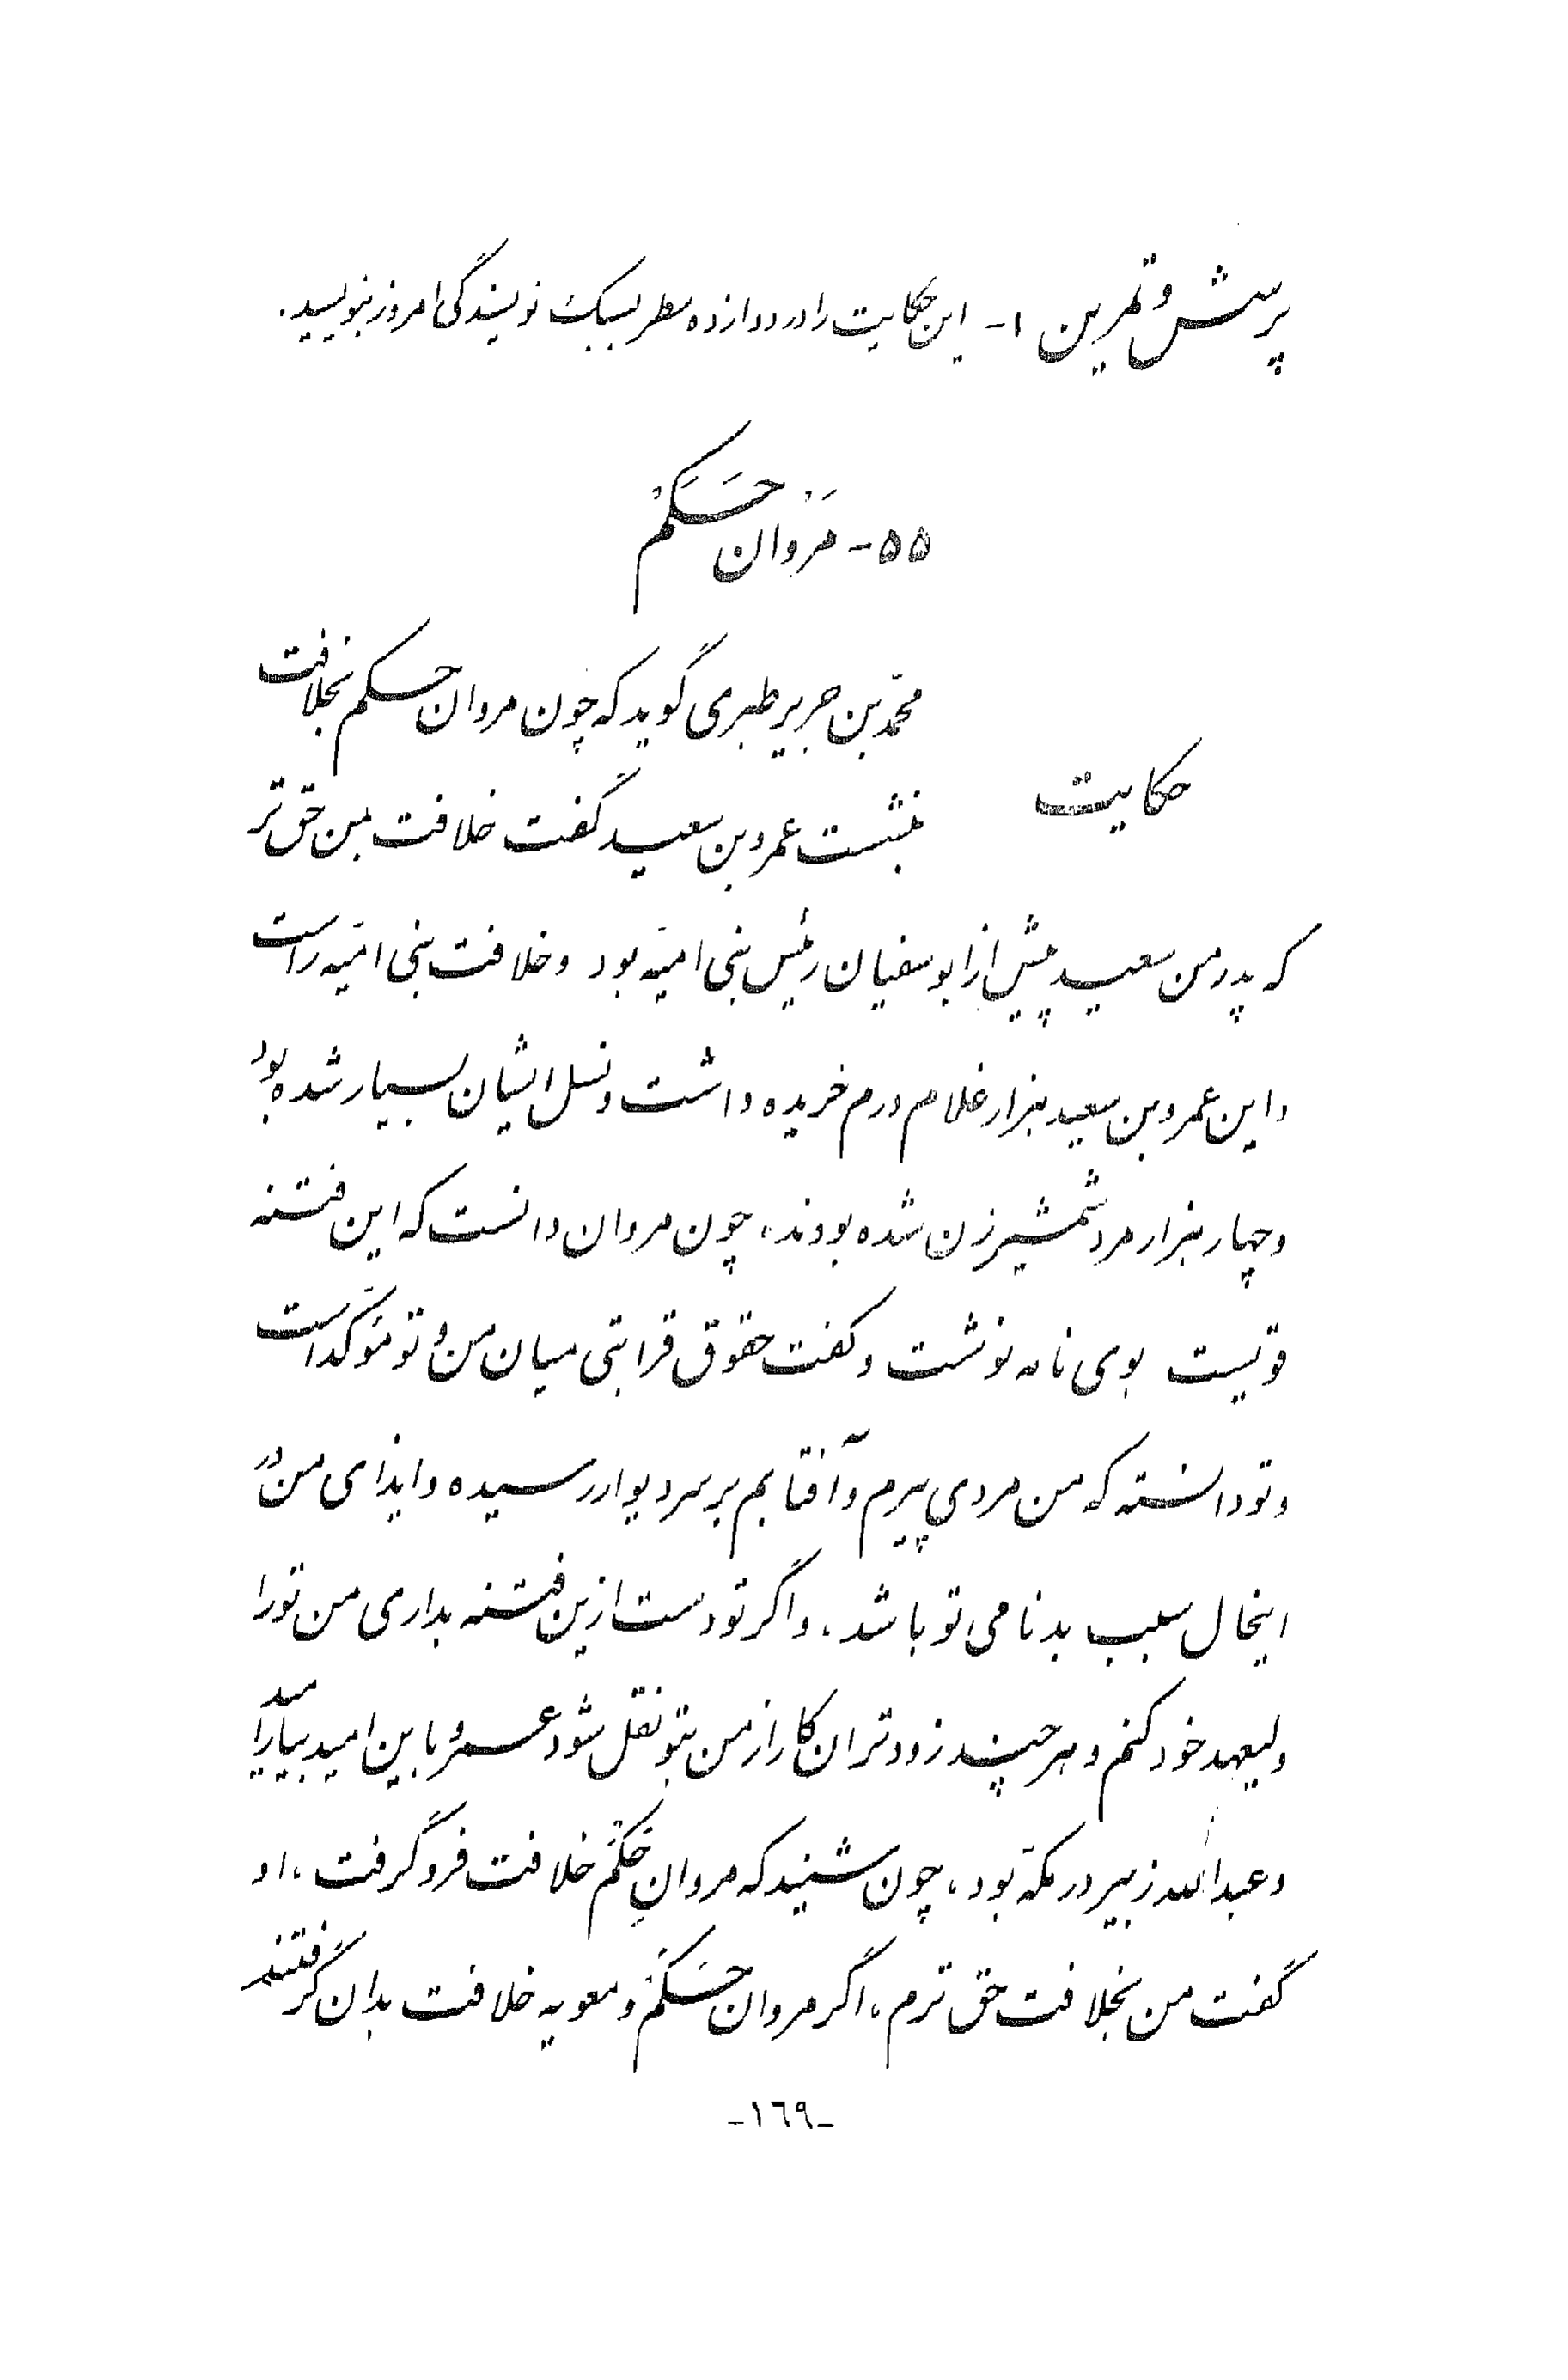 پرسش و تمرین ۱- این حکایت را در دوازده سطر بسبک نویسندگی امروز بنویسید.
۵۵- مَرْوان حَکَمْ
محمّد بن جریر طبری گوید که چون مروان حکم بخلافت
حکایت
بنشست عمرو بن سعید گفت خلافت بمن حق تر
که پدر من سعید پیش از ابوسفیان رئیس بنی امیّه بود و خلافت بنی امیّه راست
و این عمرو بن سعید هزار غلام درم خریده داشت و نسل ایشان بسیار شده بود
و چهار هزار مرد شمشیرزن شده بودند، چون مروان دانست که این فتنه
قویست بوی نامه نوشت و گفت حقوق قرابتی میان من و تو مؤکّد است
و تو دانسته که من مردی پیرم و آفتابم بر سر دیوار رسیده و ایذای من در
اینحال سبب بدنامی تو باشد، و اگر تو دست ازین فتنه بداری من تو را
ولیعهد خود کنم و هر چند زودتر آن کار از من بتو نقل شود عمرو باین امید بیارامید
و عبدالله زبیر در مکّه بود، چون شنید که مروانِ حَکَمْ خلافت فرو گرفت، او
گفت من بخلافت حق ترم، اگر مروان حَکَمْ و معویه خلافت بدان گرفتند
-١٦٩-